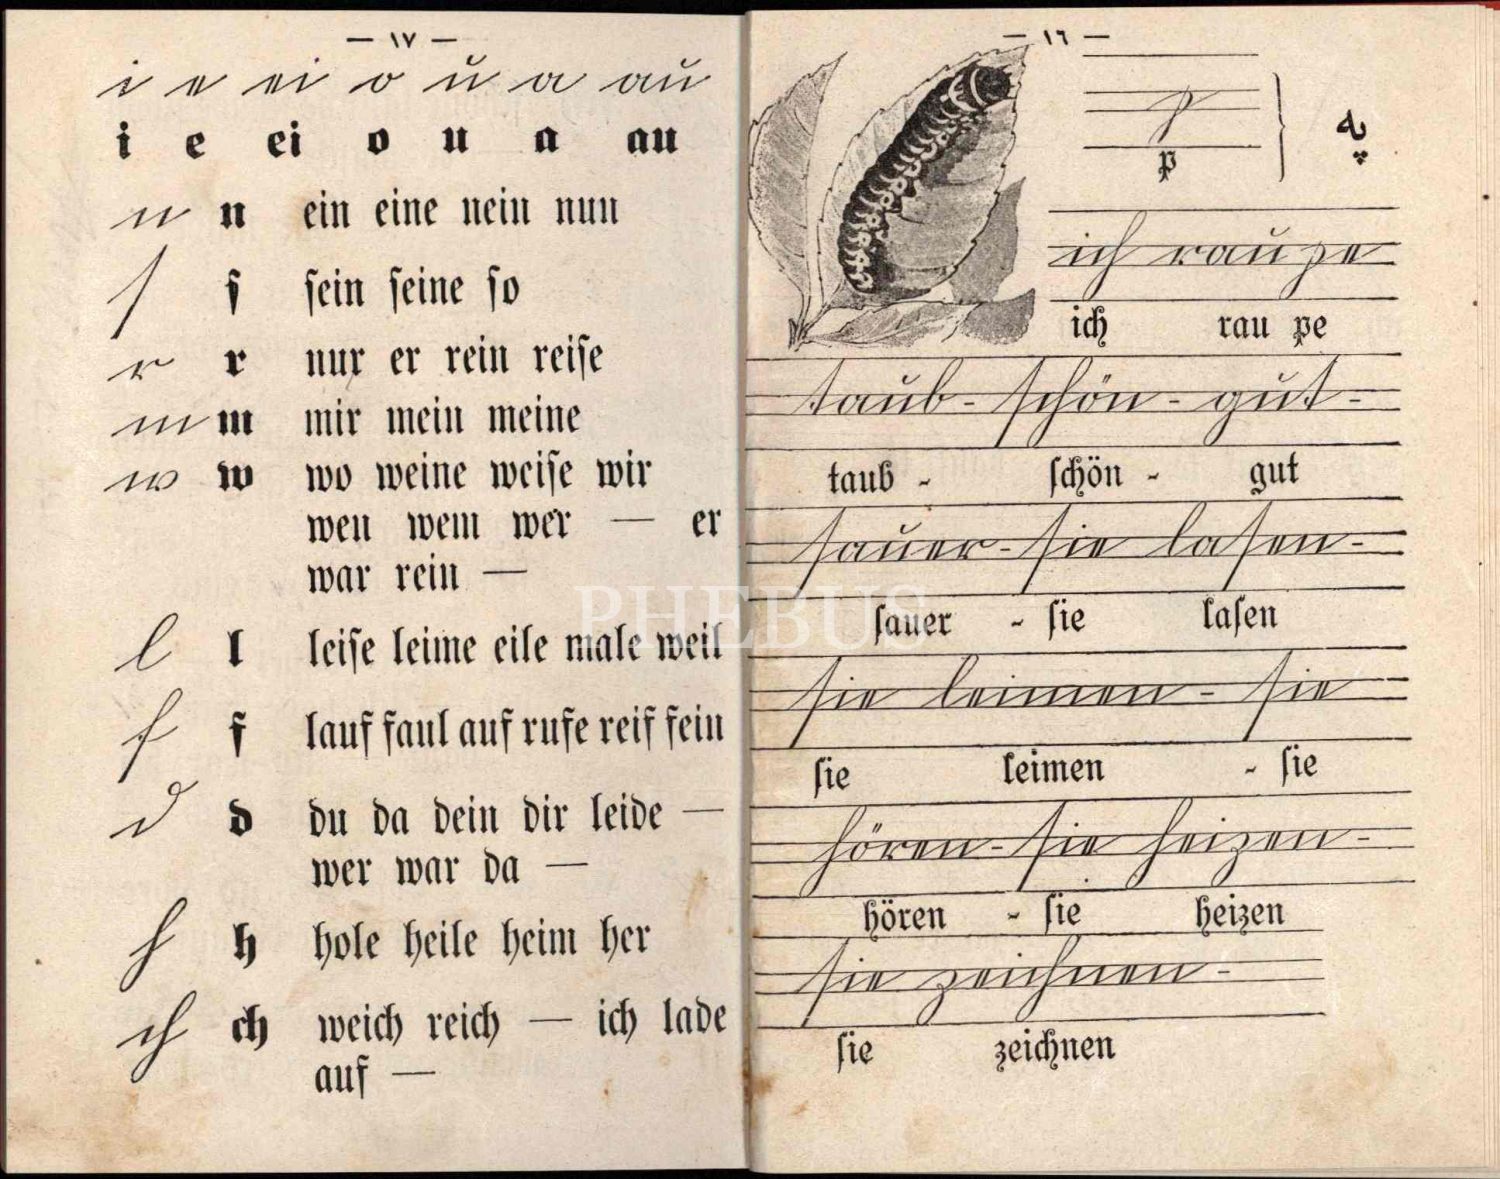 — ١٦ —
p
په
p
ich raupe
ich rau pe
taub - schön - gut -
taub - schön - gut
sauer - sie lasen -
sauer - sie lasen
sie leimen - sie
sie leimen - sie
hören - sie heizen -
hören - sie heizen
sie zeichnen -
sie zeichnen
— ١٧ —
i e ei o u a au
i e ei o u a au
n n ein eine nein nun
ſ ſ ſein ſeine ſo
r r nur er rein reiſe
m m mir mein meine
w w wo weine weiſe wir
wen wem wer — er
war rein —
l l leiſe leime eile male weil
f f lauf faul auf rufe reif fein
d d du da dein dir leide —
wer war da —
h h hole heile heim her
ch ch weich reich — ich lade
auf —
PHEBUS